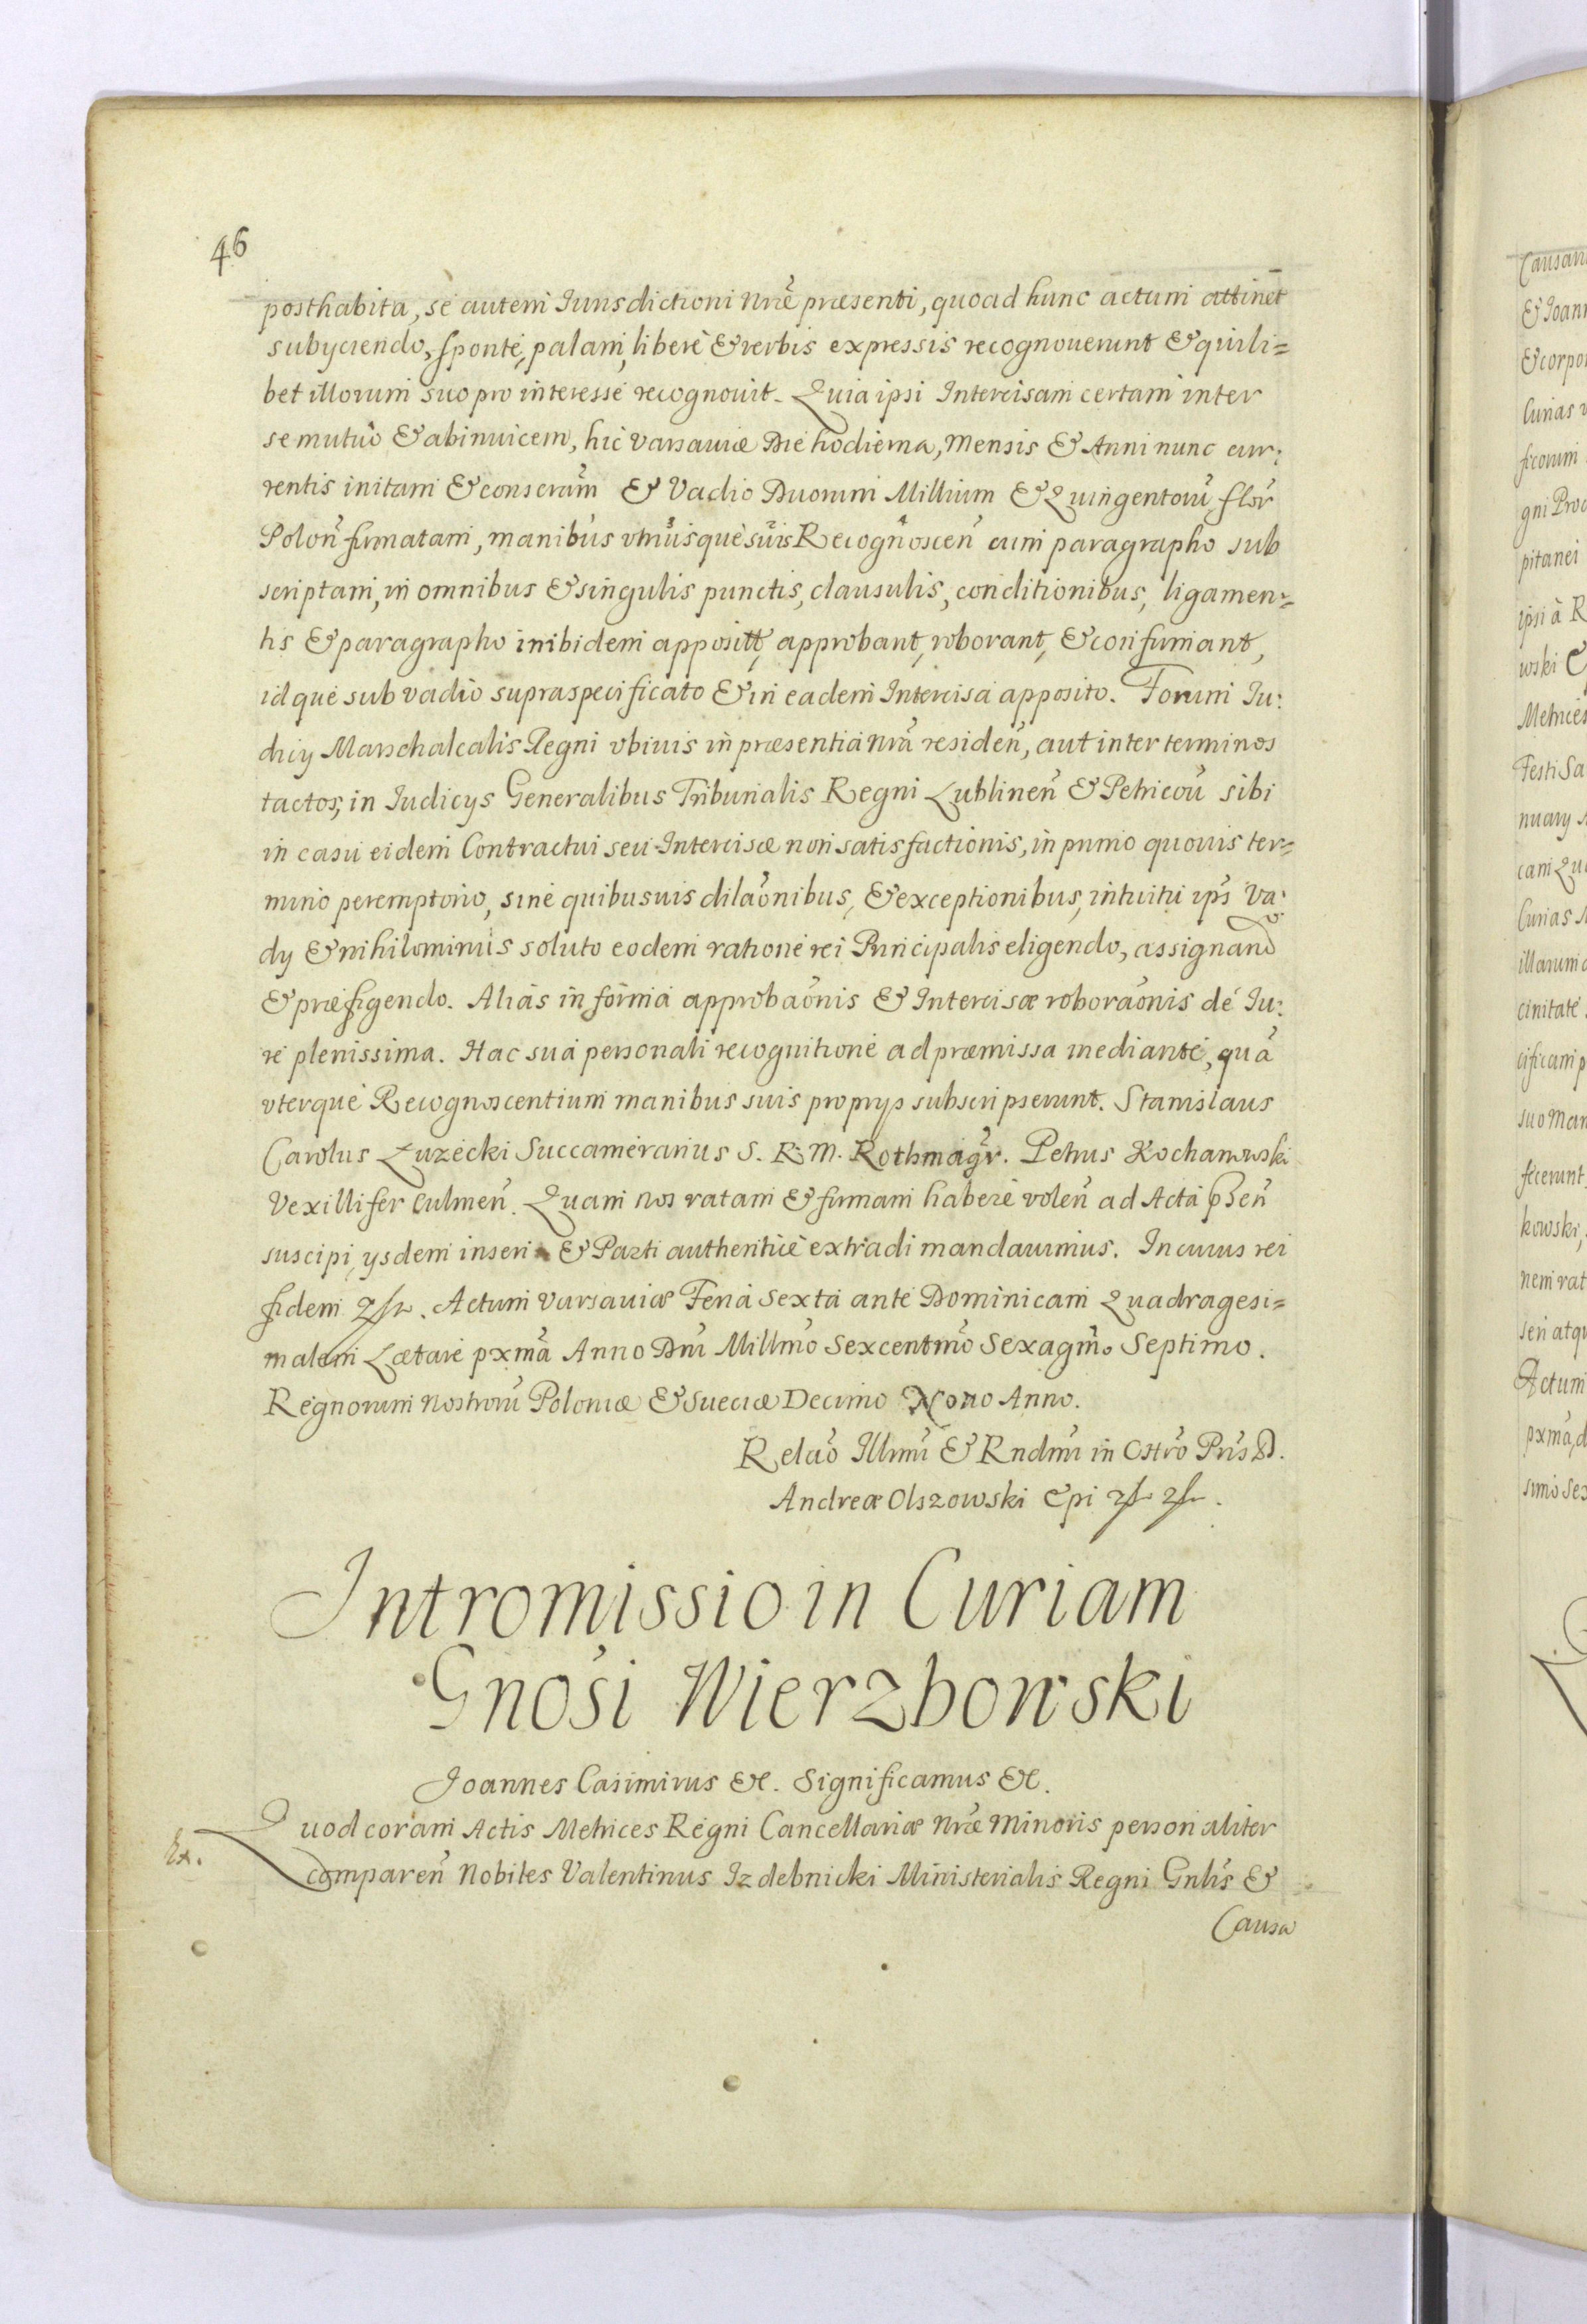 46
posthabita, se autem Iurisdictioni Nræ̃ præsenti, quoad hunc actum attinet
subyciendo, sponte, palam, libere & verbis expressis recognouerunt & quili=
bet illorum suo pro interesse recognouit. Quia ipsi Intercisam certam inter
se mutuo & abinuicem, hic Varsauiæ Die hodierna, Mensis & Anni nunc cur:
rentis initam & conscrãm & Vadio Duorum Millium & Quingentorũ flor̃
Polon̄ firmatam, manibus vtriusque suis Recognoscen̄ cum paragrapho sub
scriptam, in omnibus & singulis punctis, clausulis, conditionibus, ligamen=
tis & paragrapho inibidem apposit, approbant, roborant, & confirmant,
idque sub vadio supraspecificato & in eadem Intercisa apposito. Forum Iu:
dicy Marschalcalis Regni vbiuis in præsentia Nrã residen̄, aut inter terminos
tactos, in Iudicys Generalibus Tribunalis Regni Lublinen̄ & Petricoũ sibi
in casu eidem Contractui seu Intercisæ non satisfactionis, in primo quouis ter=
mino peremptorio, sine quibusuis dilaõnibus, & exceptionibus, intuitu ips̃ Va:
dy & nihilominus soluto eodem ratione rei Principalis eligendo, assignando
& præfigendo. Alias in forma approbaõnis & Intercisæ roboraõnis de Iu:
re plenissima. Hac sua personali recognitione ad præmissa mediante, quã
vterque Recognoscentium manibus suis proprys subscripserunt. Stanislaus
Carolus Luzecki Succamerarius S. R. M. Rothmagr̃. Petrus Kochanowski
Vexillifer Culmen̄. Quam Nos ratam & firmam habere volen̄ ad Acta p̃sen̄
suscipi, ysdem inseri & Parti authentice extradi mandauimus. In cuius rei
fidem. Actum Varsauiæ Feria Sexta ante Dominicam Quadragesi=
malem Lætare pxmã Anno Dnĩ Millmõ Sexcentmõ Sexagmõ Septimo.
Regnorum Nostrorũ Poloniæ & Sueciæ Decimo Nono Anno.
Relaõ Illmĩ & Rndmĩ in Chrõ Pris̃ D.
Andreæ Olszowski Epi
Intromissio in Curiam
Gnosĩ Wierzbowski
Joannes Casimirus &c. Significamus &c.
Quod coram Actis Metrices Regni Cancellariæ Nrẽ Minoris personaliter
Ex.
comparen̄ Nobiles Valentinus Izdebnicki Ministerialis Regni Gnlis̃ &
Causa